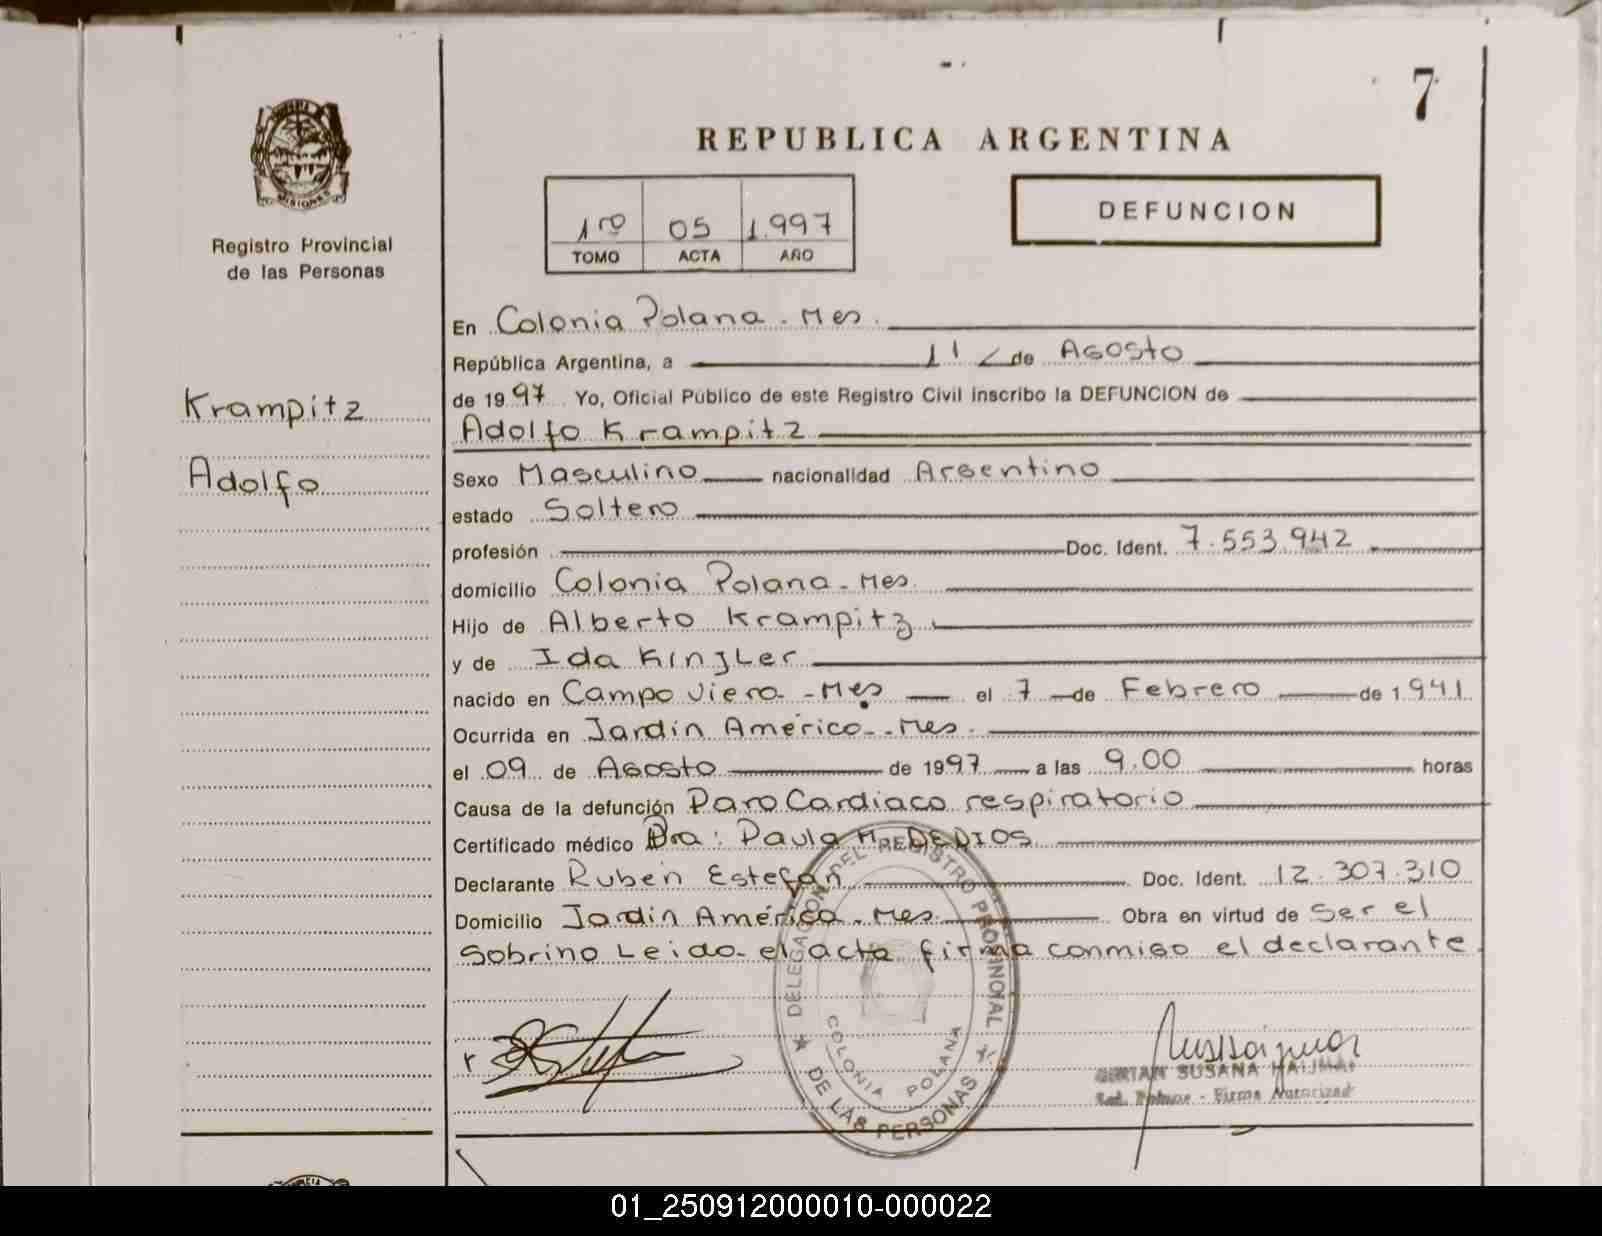 7
REPUBLICA ARGENTINA
MISIONES
Registro Provincial
de las Personas
1ro 05 1.997
TOMO ACTA AÑO
DEFUNCION
Krampitz
Adolfo
En Colonia Polana - Mes.
República Argentina, a 11 de Agosto
de 1997 Yo, Oficial Público de este Registro Civil inscribo la DEFUNCION de
Adolfo Krampitz
Sexo Masculino nacionalidad Argentino
estado Soltero
profesión Doc. Ident. 7.553.942
domicilio Colonia Polana - Mes.
Hijo de Alberto Krampitz
y de Ida Kinzler
nacido en Campo Viera - Mes el 7 de Febrero de 1.941
Ocurrida en Jardín América - Mes.
el 09 de Agosto de 1997 a las 9.00 horas
Causa de la defunción Paro Cardiaco respiratorio
Certificado médico Dra: Paula M. DEDIOS
Declarante Rubén Estefan Doc. Ident. 12.307.310
Domicilio Jardín América - Mes. Obra en virtud de Ser el
Sobrino Leido el acta firma conmigo el declarante
DELEGACION DEL REGISTRO PROVINCIAL DE LAS PERSONAS
COLONIA POLANA
SUSANA
Firma Autorizad
01_250912000010-000022